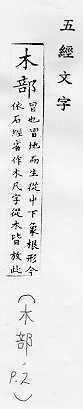 五經文字
木部
冒也冒地而生從屮下象根形今
依石經省作木凡字從木皆放此
(木部, P.2)